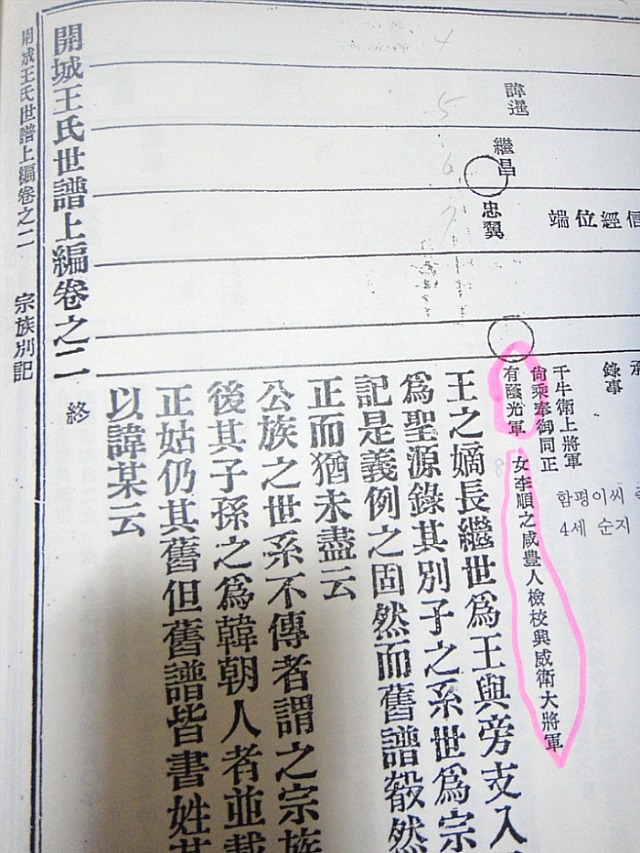 端位經信
諱暹
繼昌
忠翼
錄事
함평이씨
4세 순지
千牛衛上將軍
尙乘奉御同正
有蔭光軍
女李順之咸豊人檢校興威衛大將軍
王之嫡長繼世爲王與旁支入
爲聖源錄其別子之系世爲宗
記是義例之固然而舊譜殽然
正而猶未盡云
公族之世系不傳者謂之宗族
後其子孫之爲韓朝人者並載
正姑仍其舊但舊譜皆書姓
以諱某云
開城王氏世譜上編卷之二 終
開城王氏世譜上編卷之二 宗族別記
4
5
6
7
8